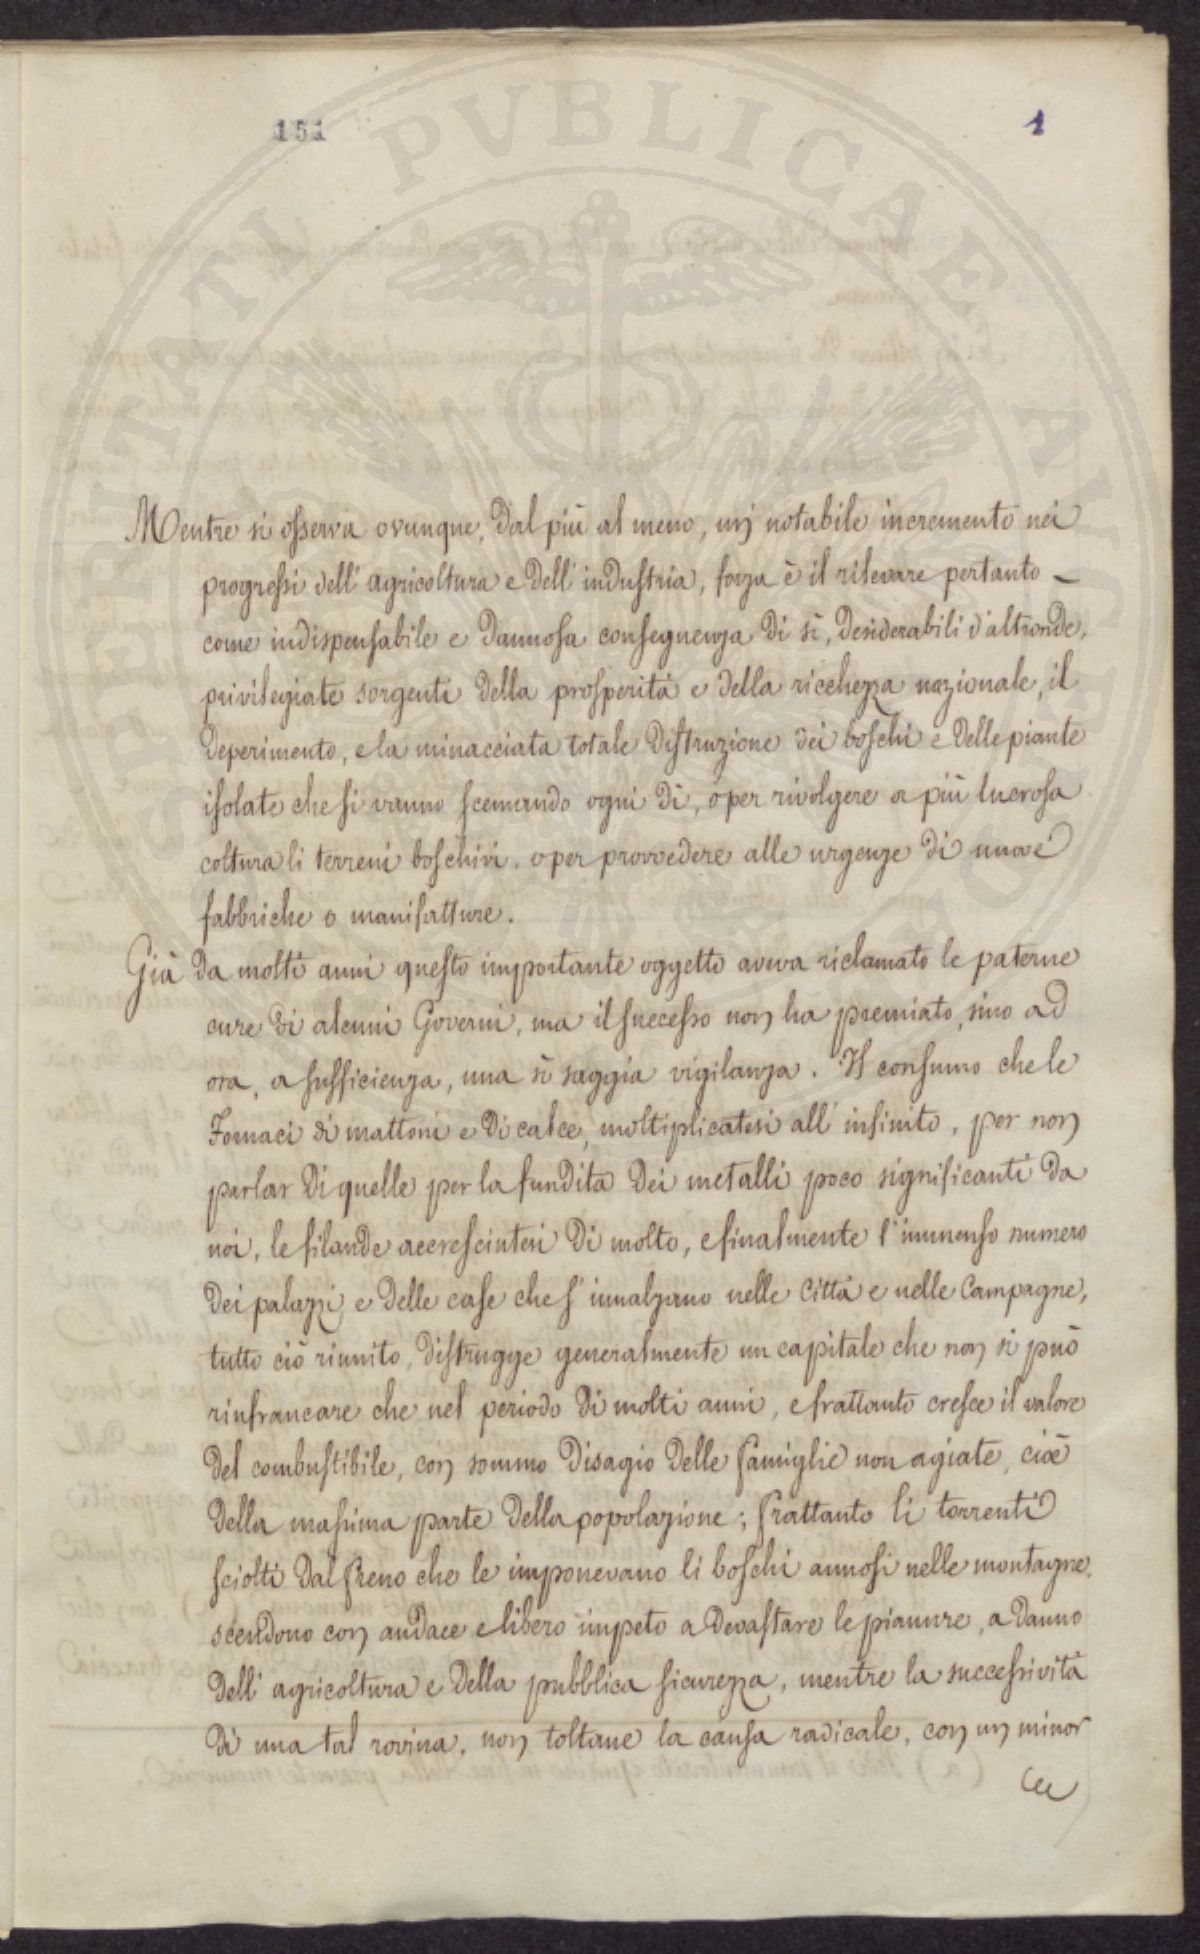 151
1
Mentre si osserva ovunque, dal più al meno, un notabile incremento nei
progressi dell' agricoltura e dell' industria, forza è il rilevare pertanto –
come indispensabile e dannosa conseguenza di sì, desiderabili d'altronde,
privilegiate sorgenti della prosperità e della ricchezza nazionale, il
deperimento, e la minacciata totale distruzione dei boschi e delle piante
isolate che si vanno scemando ogni dì, o per rivolgere a più lucrosa
coltura li terreni boschivi, o per provvedere alle urgenze di nuove
fabbriche o manifatture.
Già da molti anni questo importante oggetto aveva riclamato le paterne
cure di alcuni Governi, ma il successo non ha premiato, sino ad
ora, a sufficienza, una sì saggia vigilanza. Il consumo che le
Fornaci di mattoni e di calce, moltiplicatesi all' infinito, per non
parlar di quelle per la fundita dei metalli poco significanti da
noi, le filande accresciutesi di molto, e finalmente l'immenso numero
dei palazzi e delle case che s' innalzano nelle Città e nelle Campagne,
tutto ciò riunito, distrugge generalmente un capitale che non si può
rinfrancare che nel periodo di molti anni, e frattanto cresce il valore
del combustibile, con sommo disagio delle famiglie non agiate, cioè
della massima parte della popolazione; frattanto li torrenti
sciolti dal freno che le imponevano li boschi annosi nelle montagne,
scendono con audace e libero impeto a devastare le pianure, a danno
dell' agricoltura e della pubblica sicurezza, mentre la successività
di una tal rovina, non toltane la causa radicale, con un minor
PROSPERITATI PVBLICAE AVGENDAE